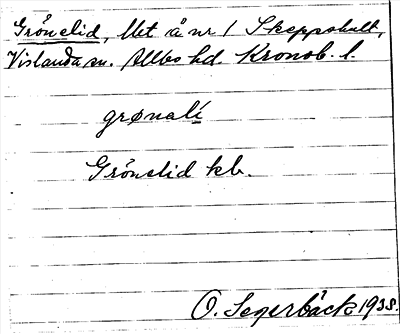 Grönelid, lht å nr 1 Skeppshult,
Vislanda sn. Allbo hd. Kronob. l.
grønalí
Grönelid kb.
O. Segerbäck 1938.